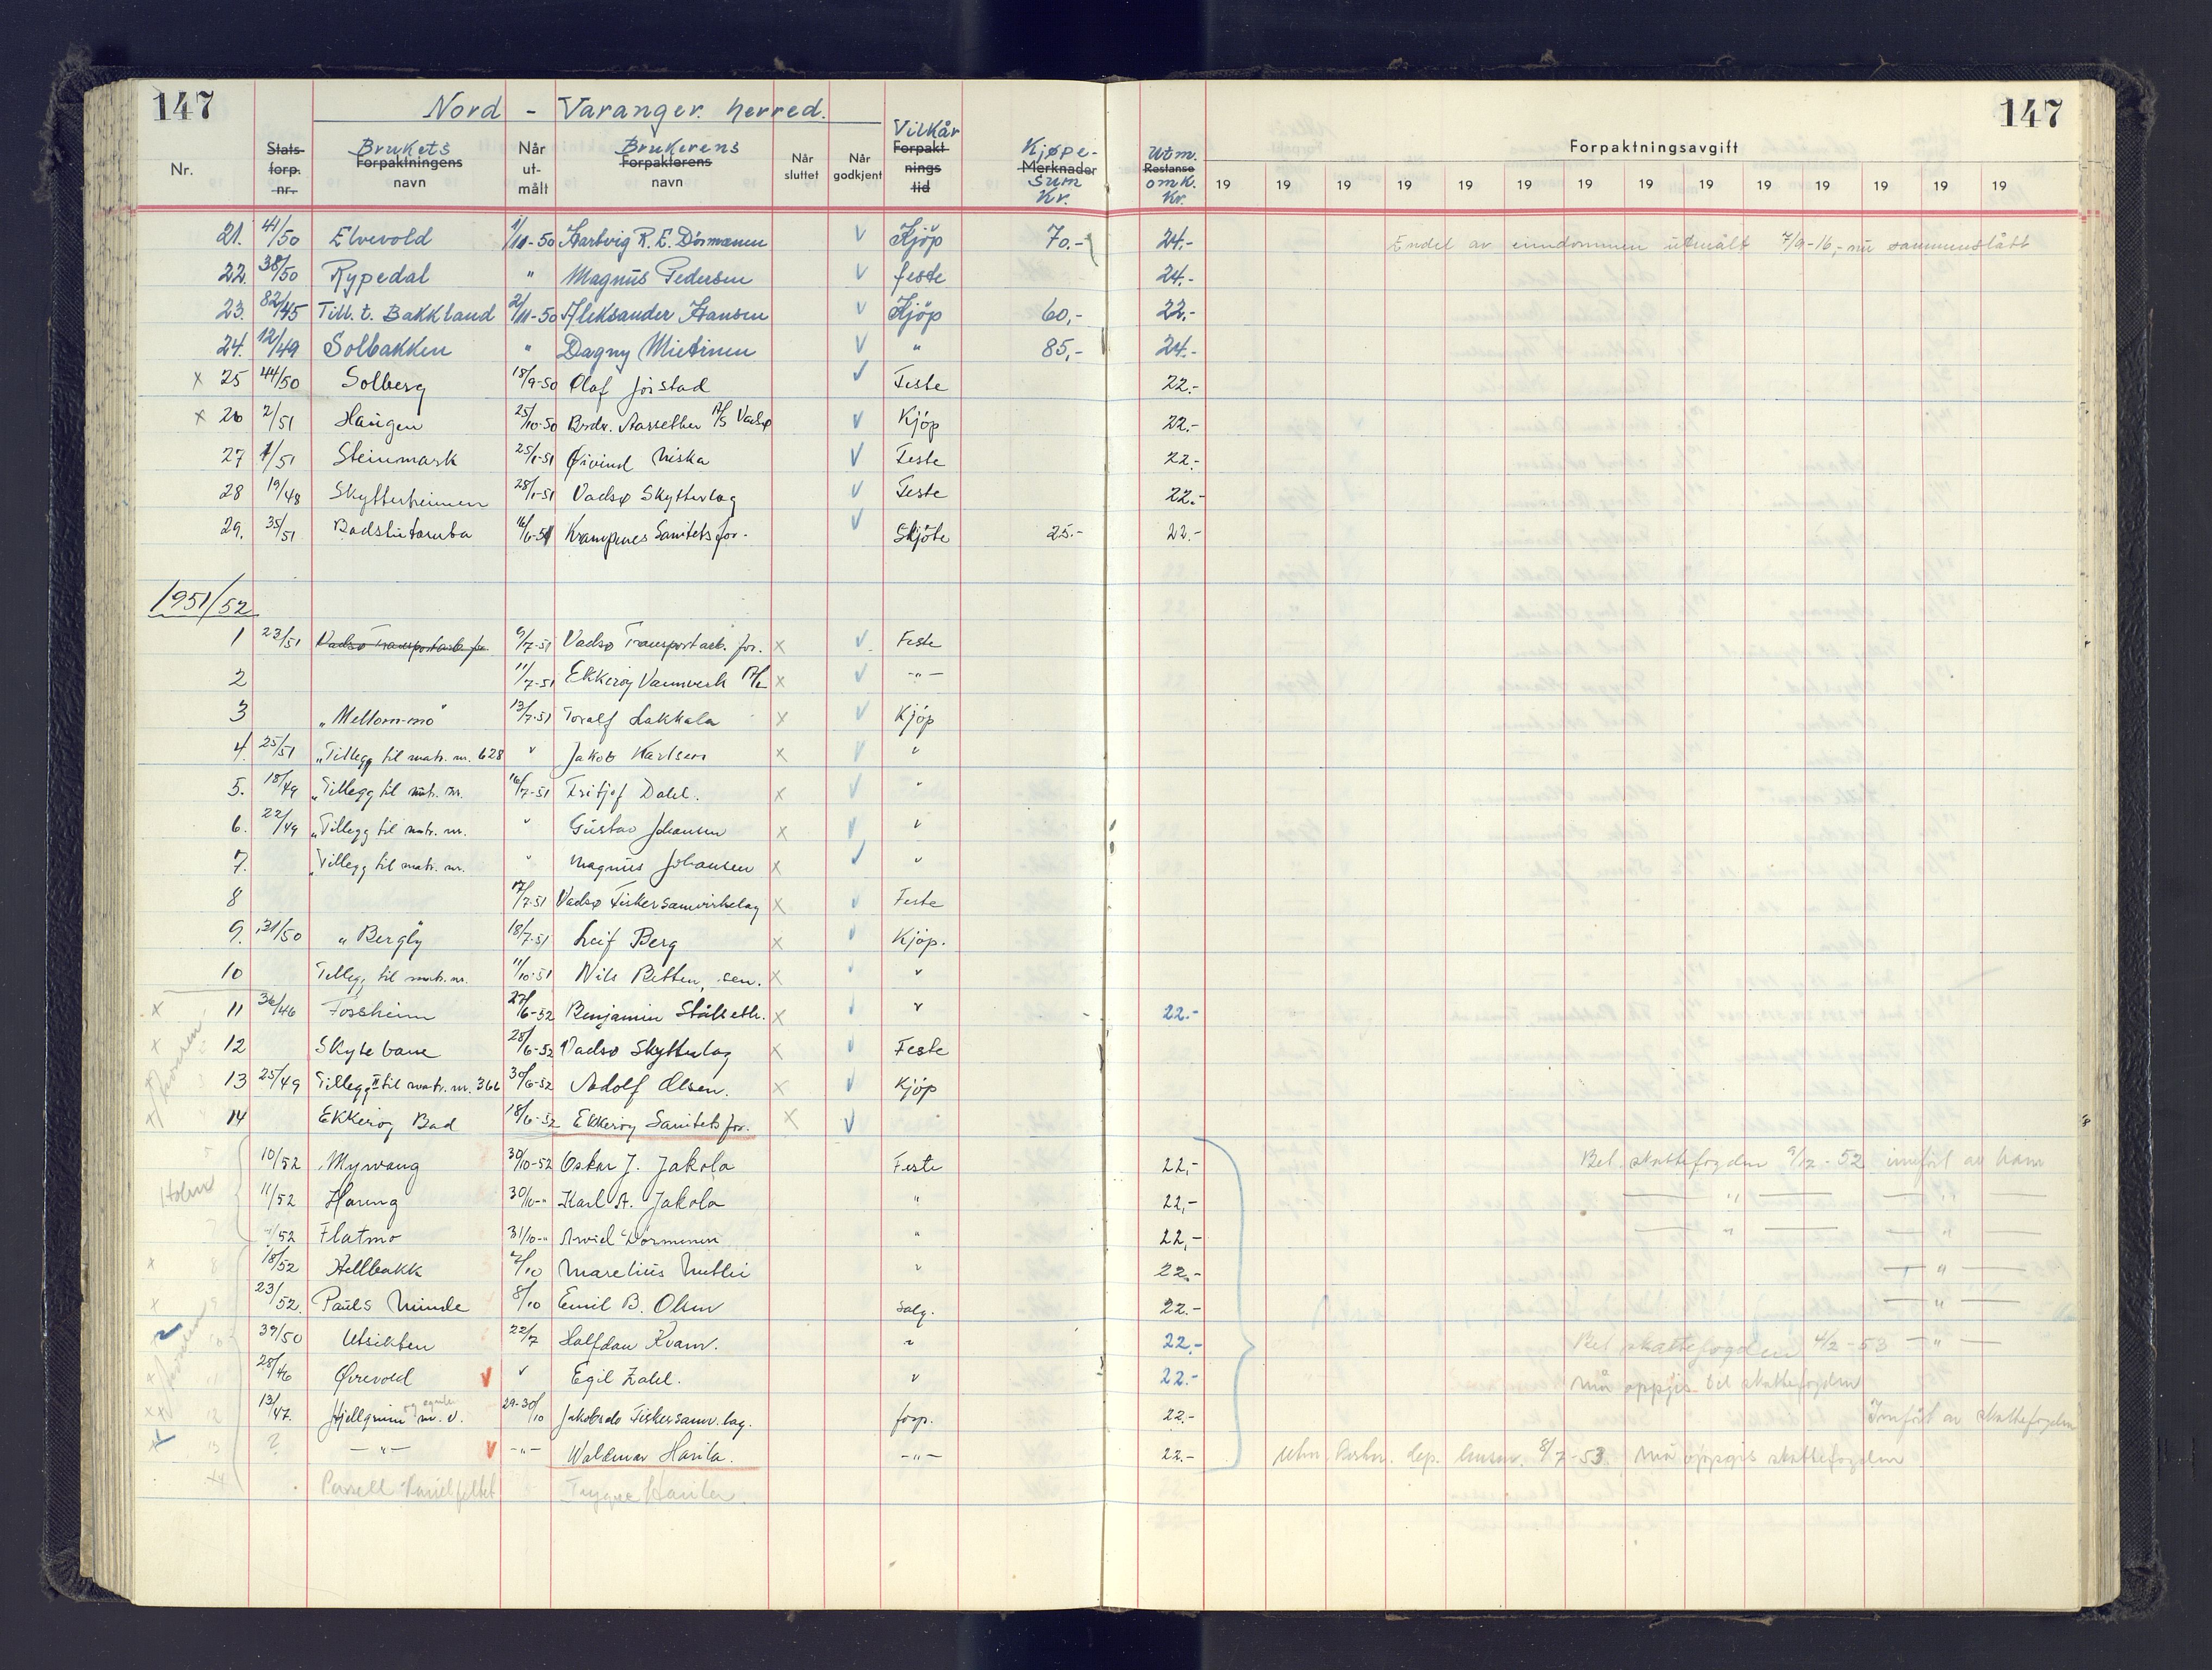 147 Nord - Varanger herred. 147
Nr. Stats- forp. nr. Brukets Forpaktningens navn Når ut- målt Brukerens Forpakterens navn Når sluttet Når godkjent Vilkår Forpakt- nings tid Kjøpe- Merknader sum Kr. Utm. Restanse omk. Kr. Forpaktningsavgift
19 19 19 19 19 19 19 19 19 19 19 19 19 19
21. 41/50 Elvevold 1/11-50 Hartvig R. E. Dörmænen v Kjöp 70.- 24.- Endel av eiendommen utmålt 7/9-16,- nu sammenslått
22. 38/50 Rypedal " Magnus Pedersen v feste 24.-
23. 82/45 Till. t. Bakkland 2/11-50 Aleksander Hansen v Kjöp 60,- 22.-
24. 12/49 Solbakken " Dagny Mietinen v " 85,- 24.-
x 25 44/50 Solberg 18/9-50 Olaf Jörstad v Feste 22.-
x 26 2/51 Haugen 25/10-50 Brdr. Aarsether A/S Vadsø v Kjöp 22.-
27 1/51 Steinmark 25/1-51 Øivind Niska v Feste 22.-
28 19/48 Skytterheimen 28/1-51 Vadsø Skytterlag v Feste 22.-
29. 35/51 Badstutomta 16/6-51 Krampnes Sanitetsfor. v Skjöte 25.- 22.-
1951/52
1 23/51 Vadsø Transportarb. for. 9/7-51 Vadsø Transportarb. for. x v Feste
2 11/7-51 Ekkeröy Vannverk A/L x v -"-
3 "Mellom-mo" 13/7-51 Toralf Lakkala x v Kjöp
4. 25/51 "Tillegg til matr. nr. 628 " Jakob Karlsen x v "
5. 18/49 "Tillegg til matr. nr. 16/7-51 Fritjof Dahl. x v "
6. 22/49 "Tillegg til matr. nr. " Gustav Johansen x v "
7. "Tillegg til matr. nr. " Magnus Johansen x v "
8 17/7-51 Vadsø Fiskersamvirkelag x v Feste
9. 31/50 "Bergly" 18/7-51 Leif Berg x v Kjöp.
10 Tillegg til matr. nr. 11/10-51 Nils Betten, sen. x v "
x 11 36/46 Fossheim 27/6-52 Benjamin Ståleth. x v " 22.-
x 12 Skytebane 28/6-52 Vadsø Skytterlag x v Feste
13 25/49 Tillegg II til matr. nr. 366 30/6-52 Adolf Olsen. x v Kjöp
14 Ekkeröy Bad 18/6-52 Ekkeröy Sanitetsfor. x v
5 10/52 Myrvang 30/10-52 Oskar J. Jakola Feste 22,- Bet. skattefogden 9/12-52 innført av ham
Holm 11/52 Haung 30/10-" Karl A. Jakola " 22,- -"- -"-
7 /52 Flatmo 31/10-" Arvid Dörmenen " 22,- -"- -"-
x 8 18/52 Hellbakk 2/10 Marelius Mutlii " 22.- -"-
x 9 23/52. Pauls Minde 8/10 Emil B. Olsen salg. 22.- -"-
10 39/50 Utsikten 22/7 Halfdan Kvam. " 22,- Bet skattefogden 4/2-53 -"-
11 28/46 Øvrevold v " Egil Dahl. " 22.- må oppgis til skattefogden
xx 12 13/47. Hjellgrunn og egnebu m. v. 29-30/10 Jakobselv Fiskersamv. lag. forp. 22.- Innført av skattefogden
13 ? -"- v -"- Waldemar Harila. -"- 22.- 8/7-53 må oppgis skattefogden
14 Parsell Trygve Harila.